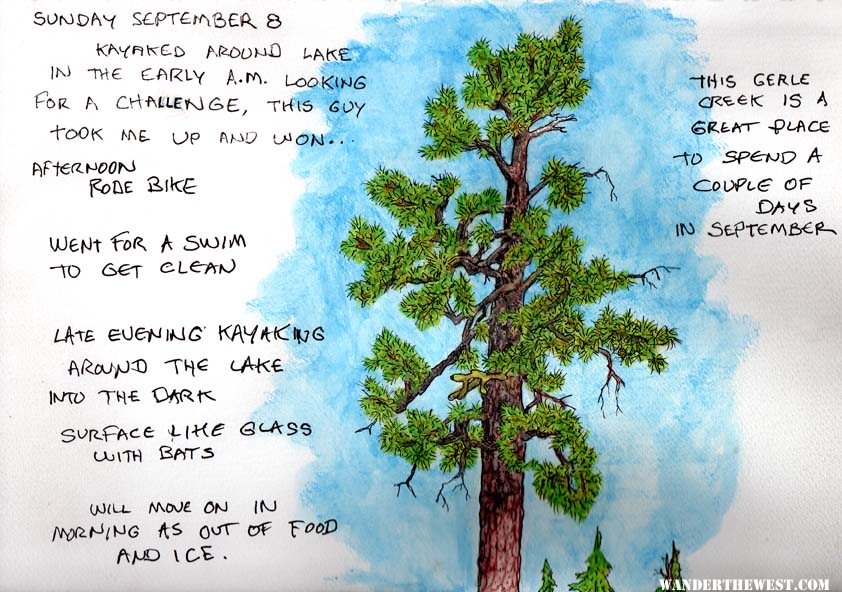 SUNDAY SEPTEMBER 8
KAYAKED AROUND LAKE
IN THE EARLY A.M. LOOKING
FOR A CHALLENGE, THIS GUY
TOOK ME UP AND WON...
AFTERNOON
RODE BIKE
WENT FOR A SWIM
TO GET CLEAN
LATE EVENING KAYAKING
AROUND THE LAKE
INTO THE DARK
SURFACE LIKE GLASS
WITH BATS
WILL MOVE ON IN
MORNING AS OUT OF FOOD
AND ICE.
THIS GERLE
CREEK IS A
GREAT PLACE
TO SPEND A
COUPLE OF
DAYS
IN SEPTEMBER
WANDERTHEWEST.COM